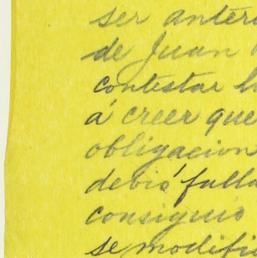 ser anteri
de Juan
contestar h
á creer que
obligacion
debió falla
consignio
se modific